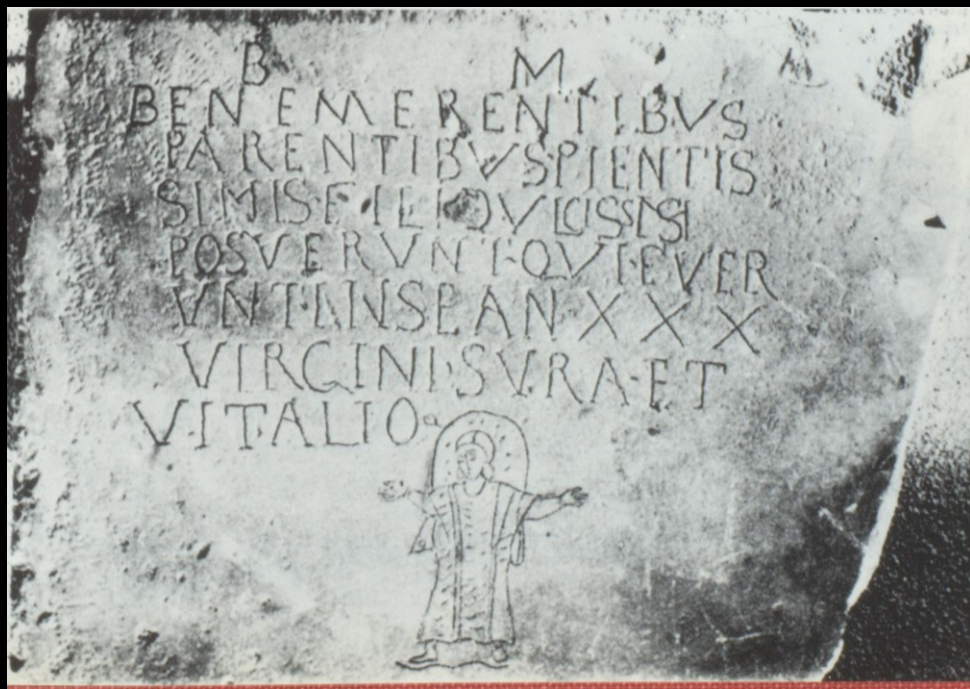 B M
BENEMERENTIBVS
PARENTIBVS·PIENTIS
SIMIS·FILI DVLCISSISI
POSVERVNT·QVI·FVER
VNT·INSE AN·XXX
VIRGINI·SVRA·ET
VITALIO